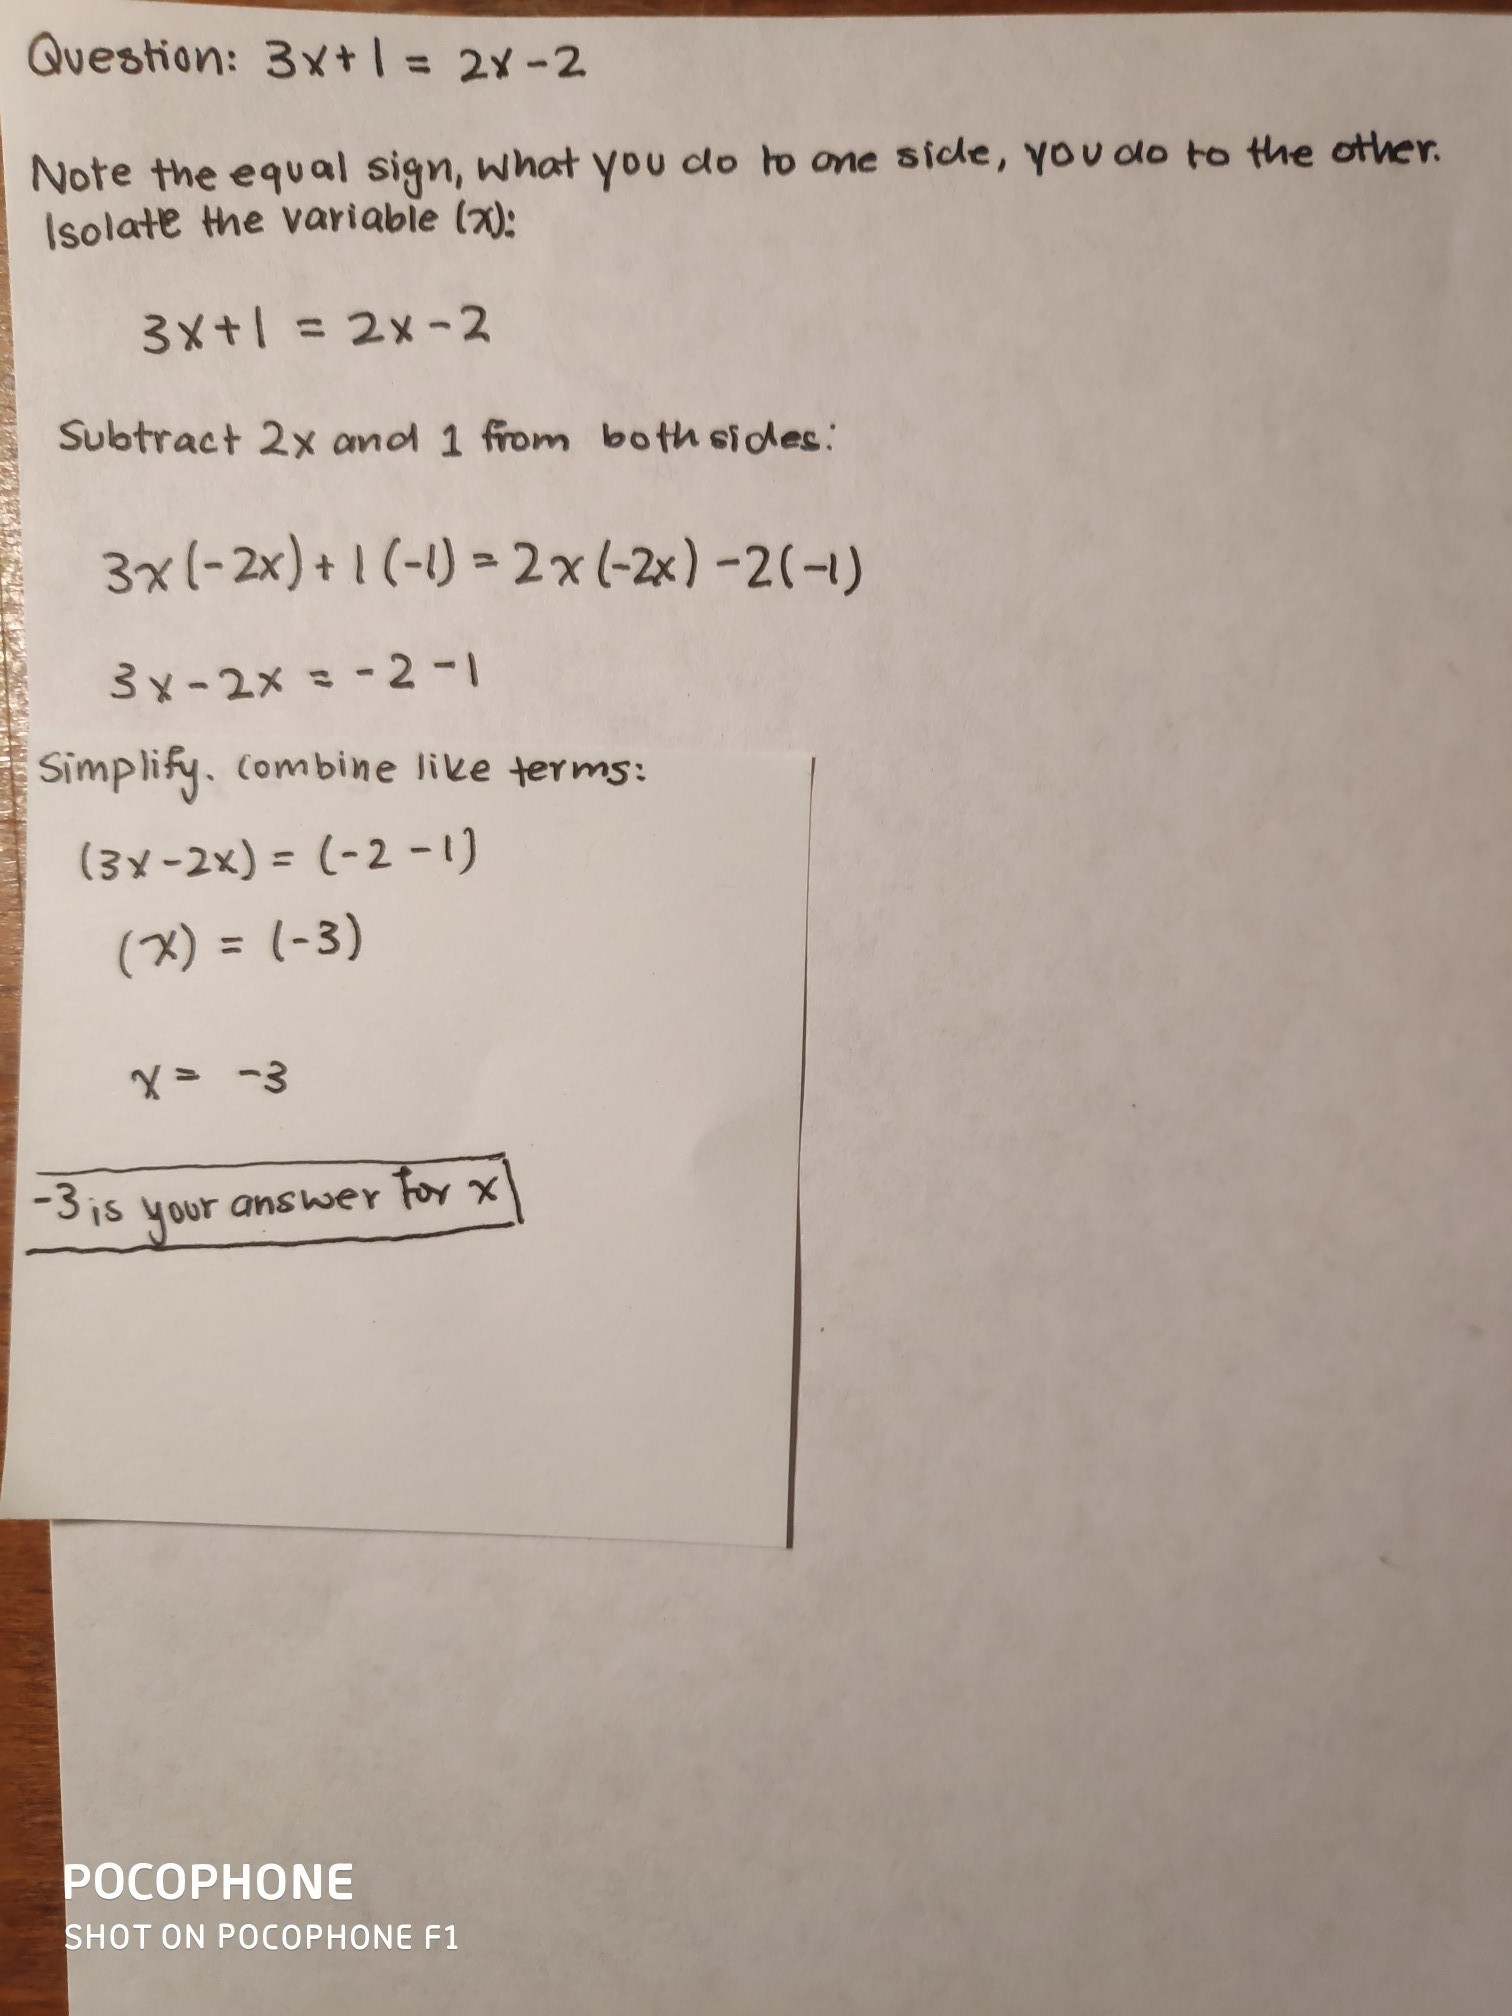 Question: 3x+1 = 2x-2
Note the equal sign, what you do to one side, you do to the other.
Isolate the variable (x):
3x+1 = 2x-2
Subtract 2x and 1 from both sides:
3x(-2x)+1(-1) = 2x(-2x) -2(-1)
3x-2x = -2-1
Simplify. Combine like terms:
(3x-2x) = (-2-1)
(x) = (-3)
x = -3
-3 is your answer for x
POCOPHONE
SHOT ON POCOPHONE F1